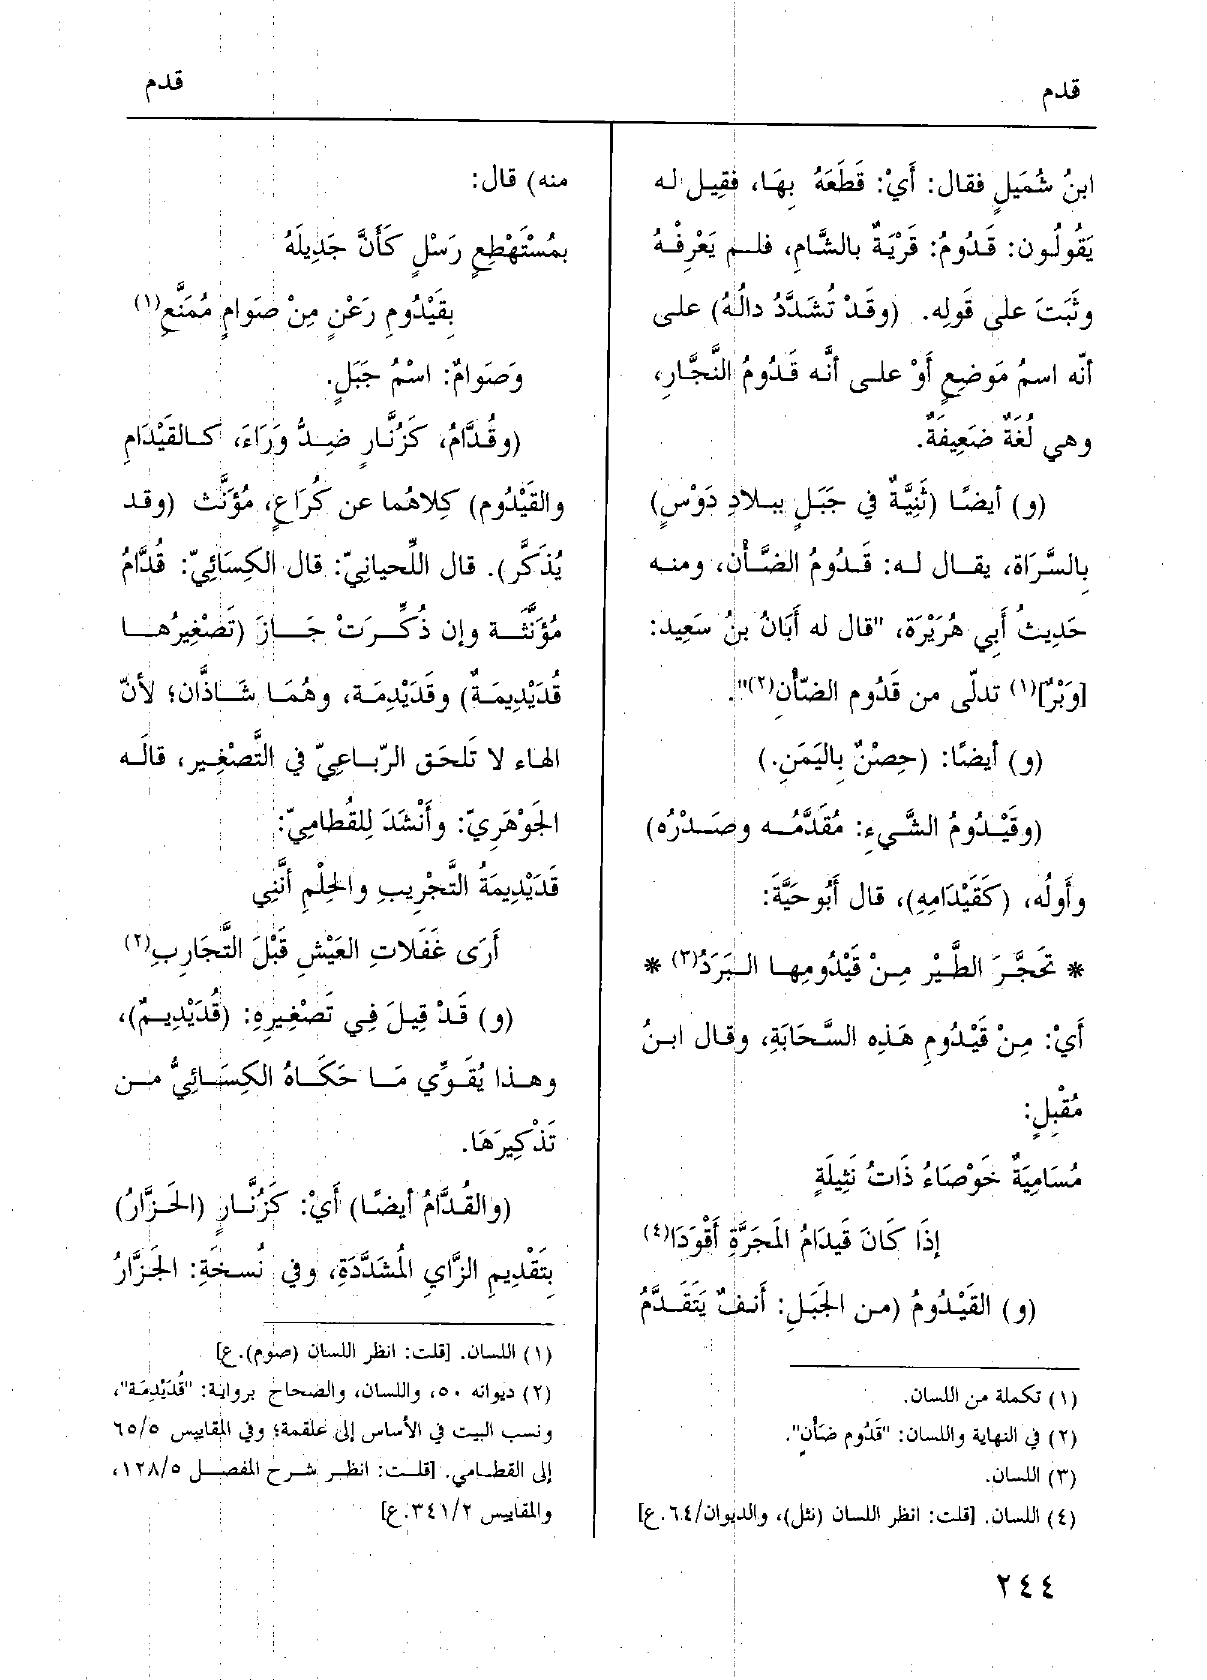 قدم
قدم
ابنُ شُمَيْلٍ فقال: أَيْ: قَطَعَهُ بِهَا، فقِيل له
يَقُولُون: قَدُومُ: قَرْيَةٌ بالشَّامِ، فلم يَعْرِفْهُ
وثَبَتَ على قَولِه. (وقَدْ تُشَدَّدُ دالُهُ) على
أنّه اسمُ مَوضِعٍ أَوْ على أنَّه قَدُومُ النَّجَّارِ،
وهي لُغَةٌ ضَعِيفَةٌ.
(و) أيضًا (ثَنِيَّةٌ في جَبَلٍ ببلادِ دَوْسٍ)
بالسَّرَاة، يقال له: قَدُومُ الضَّأْن، ومنه
حَدِيثُ أَبِي هُرَيْرَة، "قال له أَبَانُ بنُ سَعِيد:
[وَبْرٌ](١) تدلّى من قَدُوم الضّأن(٢)".
(و) أيضًا: (حِصْنٌ بِاليَمَنِ.)
(وقَيْدُومُ الشَّيءِ: مُقَدَّمُه وصَدْرُه)
وأَولُه، (كَقَيْدَامِهِ)، قال أَبُوحَيَّةَ:
* تَحَجَّرَ الطَّيْر مِنْ قَيْدُومِها البَرَدُ(٣) *
أَيْ: مِنْ قَيْدُومِ هَذِه السَّحَابَةِ، وقال ابنُ
مُقْبِلٍ:
مُسَامِيَةٌ خَوْصَاءُ ذَاتُ نَثِيلَةٍ
إذَا كَانَ قَيدَامُ المَجَرَّةِ أَقْوَدَا(٤)
(و) القَيْدُومُ (من الجَبَلِ: أَنفٌ يَتَقَدَّمُ
(١) تكملة من اللسان.
(٢) في النهاية واللسان: "قَدُوم ضَأْنٍ".
(٣) اللسان.
(٤) اللسان. [قلت: انظر اللسان (نثل)، والديوان/٦٤.ع]
منه) قال:
بمُسْتَهْطِعٍ رَسْلٍ كَأَنَّ جَدِيلَهُ
بِقَيْدُومِ رَعْنٍ مِنْ صَوَامٍ مُمَنَّعِ(١)
وَصَوَامٌ: اسْمُ جَبَلٍ.
(وقُدَّامُ، كَزُنَّارٍ ضِدُّ وَرَاءَ، كالقَيْدَامِ
والقَيْدُوم) كِلاهُما عن كُرَاعٍ، مُؤَنَّث (وقد
يُذَكَّر). قال اللِّحيانِيّ: قال الكِسَائِيّ: قُدَّامُ
مُؤَنَّثَة وإن ذُكِّرَتْ جَازَ (تَصْغِيرُها
قُدَيْدِيمَةٌ) وقُدَيْدِمَة، وهُمَا شَاذَّان؛ لأنّ
الهاء لا تَلحَق الرّباعِيّ في التَّصْغِير، قالَه
الجَوْهَرِيّ: وأَنْشَدَ لِلقُطامِيّ:
قُدَيْدِيمَةُ التَّجْرِيبِ والحِلْمِ أنَّنِي
أَرَى غَفَلاتِ العَيْشِ قَبْلَ التَّجَارِبِ(٢)
(و) قَدْ قِيلَ فِي تَصْغِيرِهِ: (قُدَيْدِيمٌ)،
وهذا يُقَوِّي مَا حَكَاهُ الكِسَائِيُّ من
تَذْكِيرَهَا.
(والقُدَّامُ أيضًا) أَيْ: كَزُنَّارٍ (الحَزَّارُ)
بِتَقْدِيمِ الزَّاي المُشَدَّدَةِ، وفي نُسخَةِ: الجَزَّارُ
(١) اللسان. [قلت: انظر اللسان (صوم).ع]
(٢) ديوانه ٥٠، واللسان، والصحاح برواية: "قُدَيْدِمَة"،
ونسب البيت في الأساس إلى علقمة؛ وفي المقاييس ٦٥/٥
إلى القطامي. [قلت: انظر شرح المفصل ١٢٨/٥،
والمقاييس ٣٤١/٢.ع]
٢٤٤